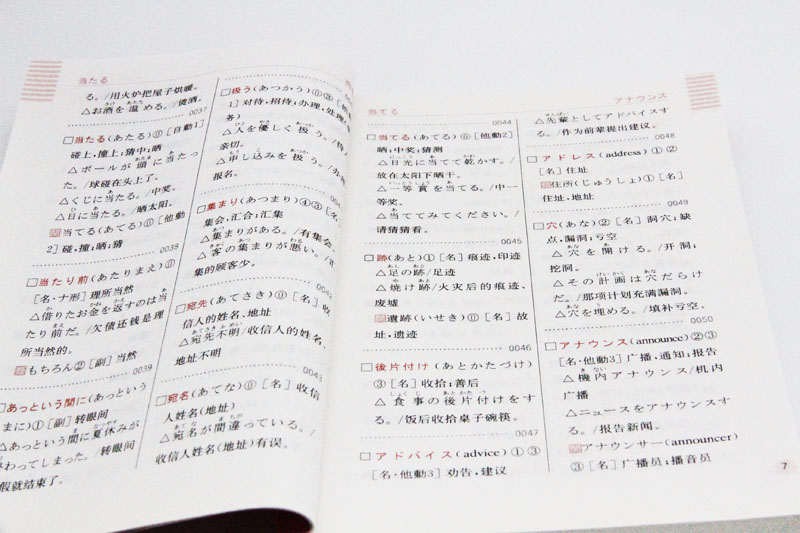 当たる
る。/用火炉把屋子烘暖。
△お酒を温める。/烫酒。
0037
□当たる(あたる)⓪[自動1]
碰上,撞上;猜中;晒
△ボールが頭に当たっ
た。/球碰在头上了。
△くじに当たる。/中奖。
△日に当たる。/晒太阳。
当てる(あてる)⓪[他動
2]碰,撞;晒;猜
0038
□当たり前(あたりまえ)⓪
[名·ナ形]理所当然
△借りたお金を返すのは当
たり前だ。/欠债还钱是理
所当然的。
もちろん②[副]当然
0039
□あっという間に(あっという
まに)①[副]转眼间
△あっという間に夏休みが
終わってしまった。/转眼间
假就结束了。
□扱う(あつかう)⓪③[他
1]对待,招待;办理,处理
务)
△人を優しく扱う。/待人
亲切。
△申し込みを扱う。/办理
报名。
□集まり(あつまり)④③[名
集会,汇合;汇集
△集まりがある。/有集会。
△客の集まりが悪い。/
集的顾客少。
0042
□宛先(あてさき)⓪[名]
信人的姓名、地址
△宛先不明/收信人的姓名、
地址不明
0043
□宛名(あてな)⓪[名]收信
人姓名(地址)
△宛名が間違っている。/
收信人姓名(地址)有误。
当てる
0044
□当てる(あてる)⓪[他動2]
晒;中奖;猜测
△日光に当てて乾かす。/
放在太阳下晒干。
△一等賞を当てる。/中一
等奖。
△当ててみてください。/
请猜猜看。
0045
□跡(あと)①[名]痕迹,印迹
△足の跡/足迹
△焼け跡/火灾后的痕迹、
废墟
遺跡(いせき)⓪[名]故
址,遗迹
0046
□後片付け(あとかたづけ)
③[名]收拾;善后
△食事の後片付けをす
る。/饭后收拾桌子碗筷。
0047
□アドバイス(advice)①③
[名·他動3]劝告,建议
アナウンス
△先輩としてアドバイスす
る。/作为前辈提出建议。
0048
□アドレス(address)①②
[名]住址
住所(じゅうしょ)①[名]
住址,地址
0049
□穴(あな)②[名]洞穴;缺
点,漏洞;亏空
△穴を開ける。/开洞;
挖洞。
△その計画は穴だらけ
だ。/那项计划充满漏洞。
△穴を埋める。/填补亏空。
0050
□アナウンス(announce)②③
[名·他動3]广播,通知;报告
△機内アナウンス/机内
广播
△ニュースをアナウンスす
る。/报告新闻。
アナウンサー(announcer)
③[名]广播员;播音员
7